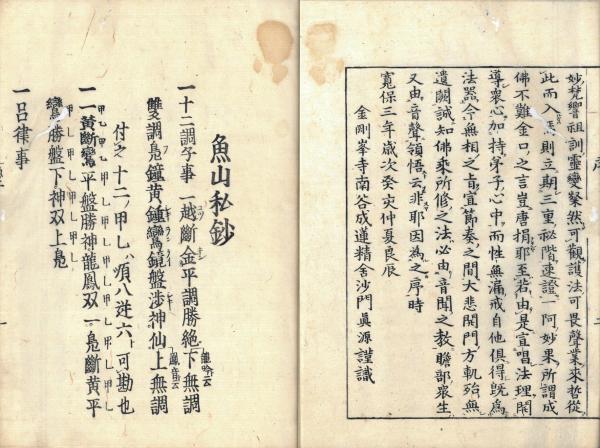 妙梵響祖訓靈變粲然可觀護法可畏聲業來哲從
此而入焉則立期三重秘階速證一阿妙果所謂成
佛不難金口之言豈唐捐耶至若由是宣唱法理閑
導衷心加持茅子心中而性無漏戒自他俱得既爲
法器今無相之㫖宜節奏之間大悲関門方軌殆無
遺闕誠知佛乘所修之法必由音聞之教瞻部衆生
又由音聲領悟云非耶因為之序時
寬保三年歲次癸亥仲夏良辰
金剛峯寺南谷成蓮精舍沙門眞源謹識
魚山私鈔
一十二調子事 一越斷金平調勝絶下無調
龍吟云
雙調鳧鐘黃鐘鸞鏡盤渉神仙上無調
鳳音云
付之十二ノ甲乙ノ頌八逆六可勘也
一一黃斷鸞平盤勝神龍鳳双一鳧斷黃平
甲乙甲乙甲乙甲乙甲乙甲乙甲乙
鸞勝盤下神双上鳧
一呂律事